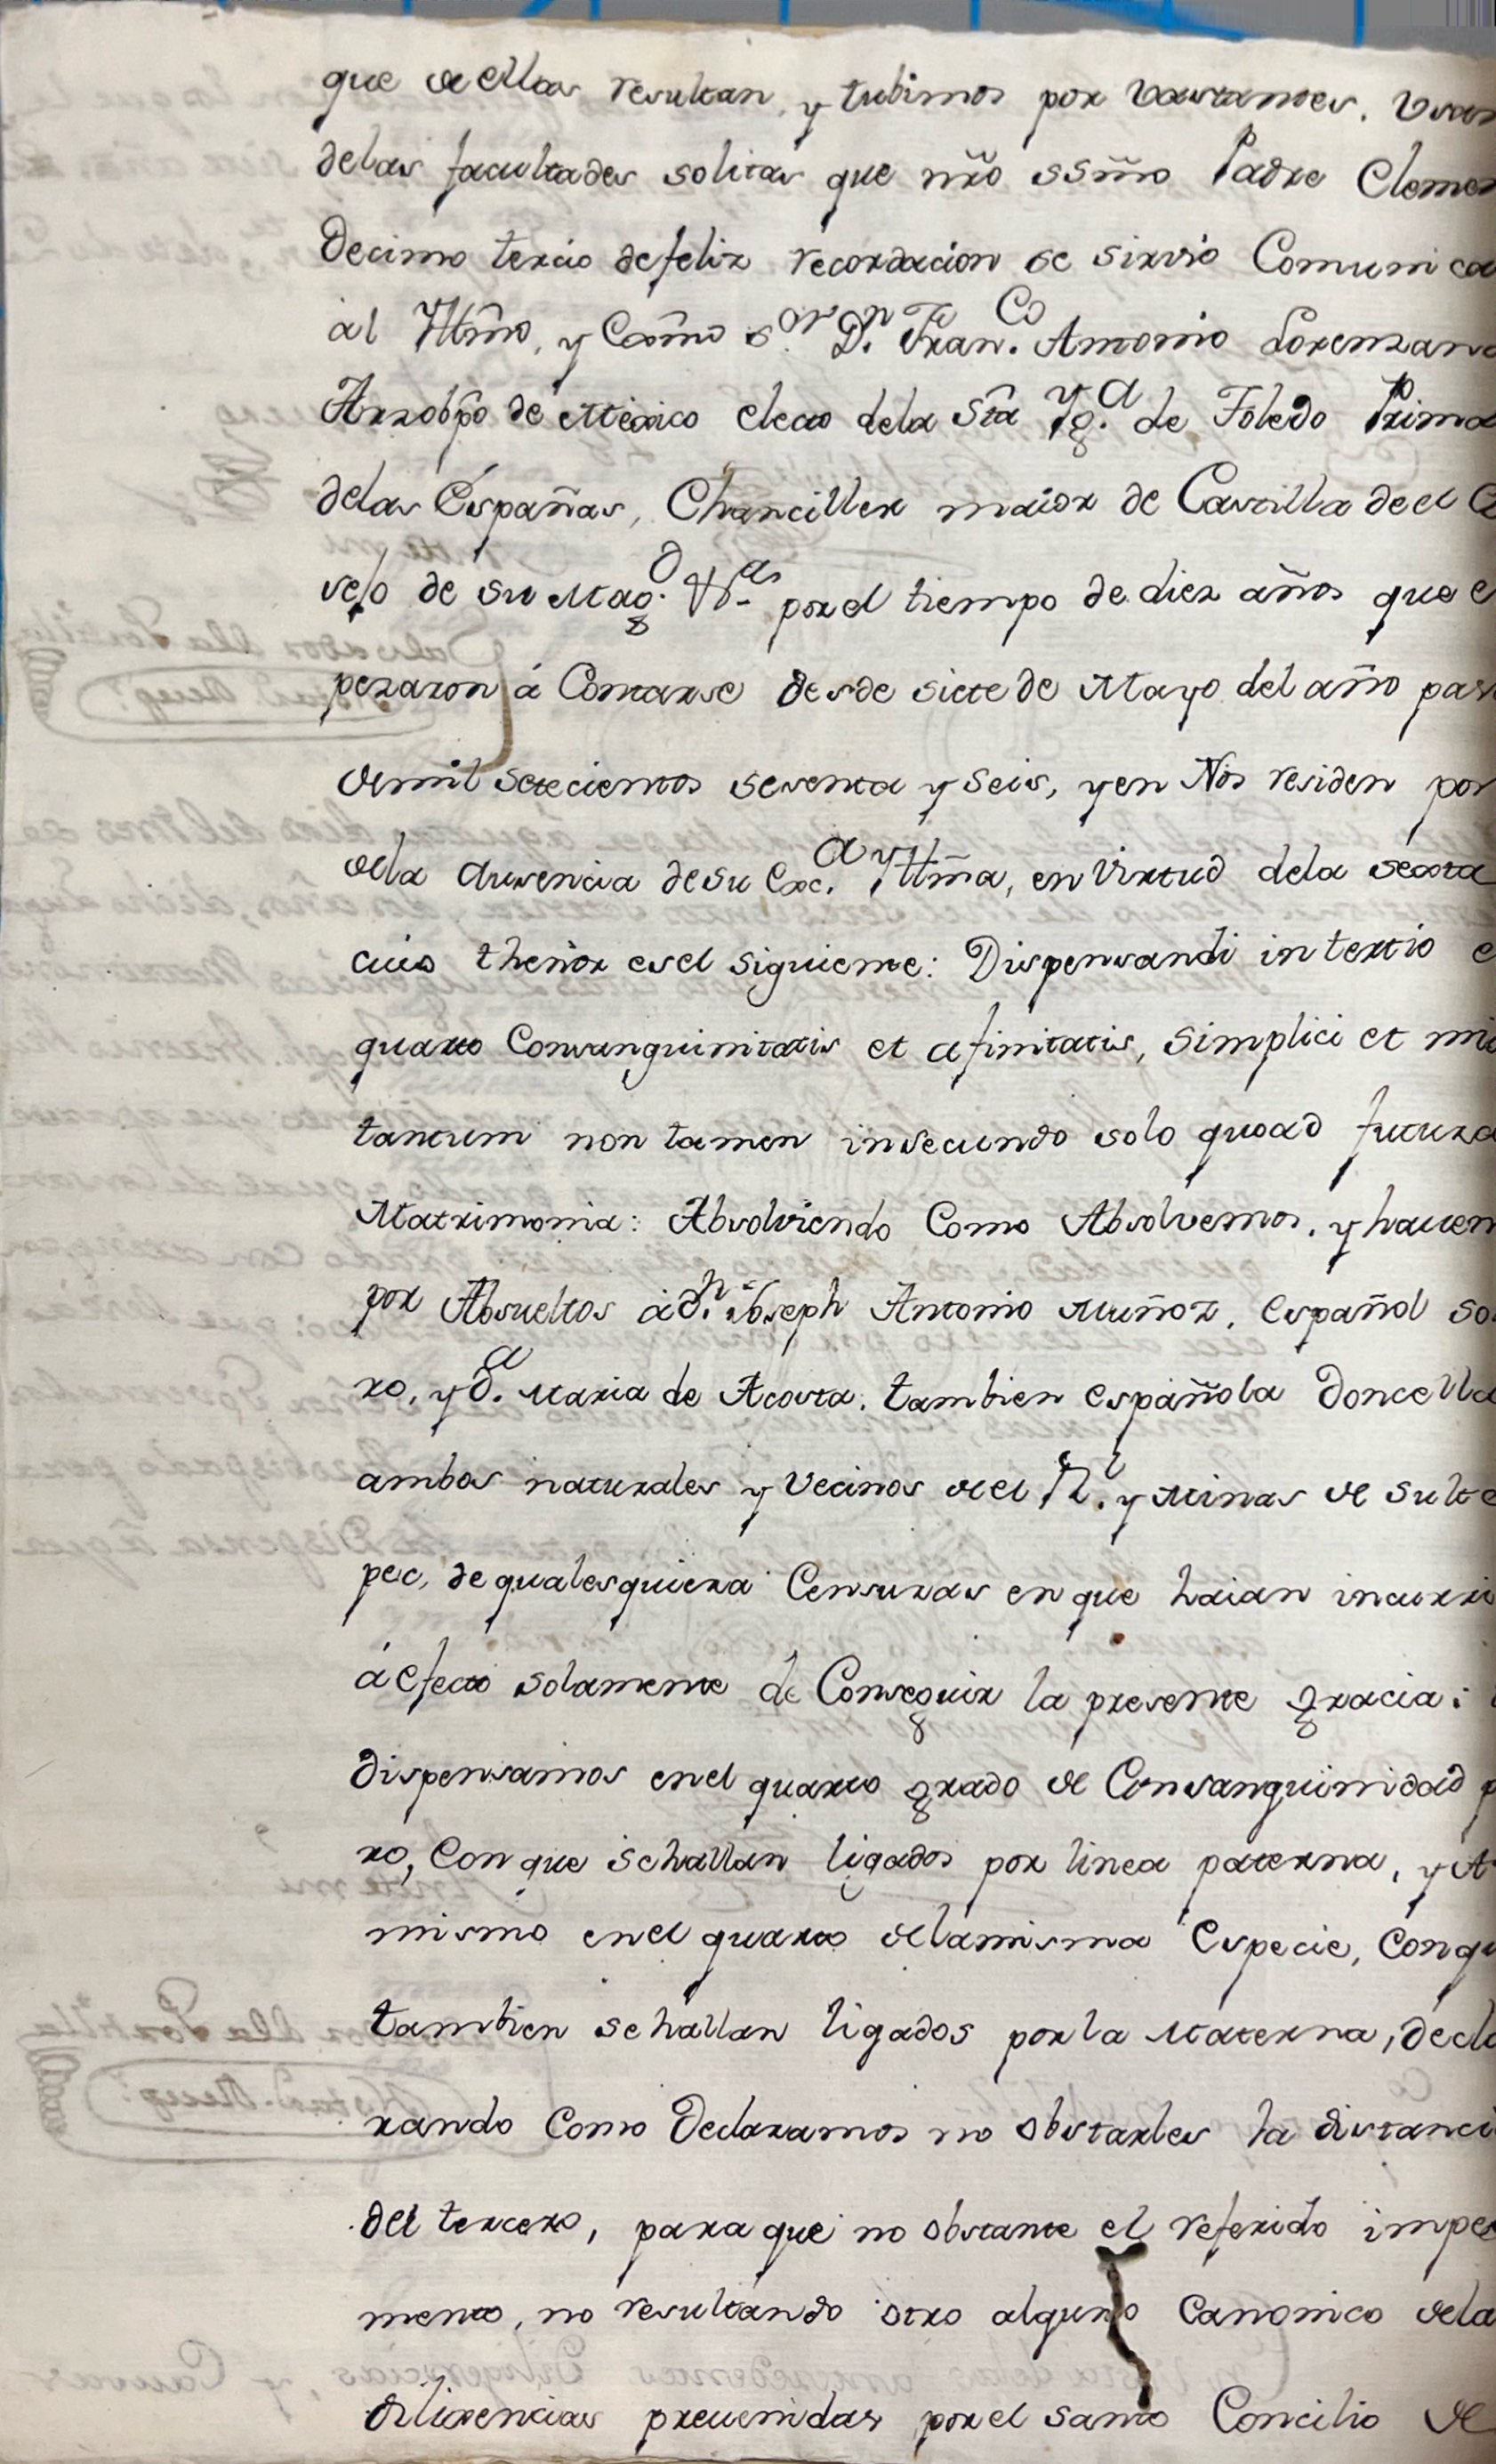 que de ellas resultan, y tubimos por vastantes. Vsan
delas facultades solitas que nr̃o SSm̃o Padre Clemen
Decimo tercio defeliz recordacion se sirvió Comunica
ál Yllm̃o, y Exm̃o S.or D.n Fran.co Antonio Lorenzana
Arzobp̃o de México electo dela Sta Yg.a de Toledo Prima
delas Españas, Chanciller maior de Castilla de el C
sejo de su Mag.d V.as por el tiempo de diez años que e
pezaron á Contarse desde siete de Mayo del año pas
de mil setecientos sesenta y seis, y en Nós residen por
dela Ausencia de su Exc.a Yllm̃a, en Virtud dela sexta
cuio thenór es el siguiente: Dispensandi in tertio e
quarto Consanguinitatis et afinitatis, simplici et mix
tantum non tamen insecundo solo quoad futura
Matrimonia: Absolviendo Como Absolvemos, y havem
por Absueltos á d.n Joseph Antonio Muñoz, español so
ro, y d.a Maria de Acosta, tambien española Doncella
ambos naturales y Vecinos de el R.l y Minas de Sulte
pec, de qualesquiera Censuras en que haian incurri
á efecto solamente de Conseguir la presente gracia:
dispensamos en el quarto grado de Consanguinidad p
ro, Con que se hallan ligados por linea paterna, y A
mismo en el quarto de la misma Especie, Conqu
tambien se hallan ligados por la Materna, decla
rando Como Declaramos no obstarles la distanci
del tercero, para que no obstante el referido impe
mento, no resultando otro alguno Canonico dela
diligencias prevenidas por el santo Concilio de